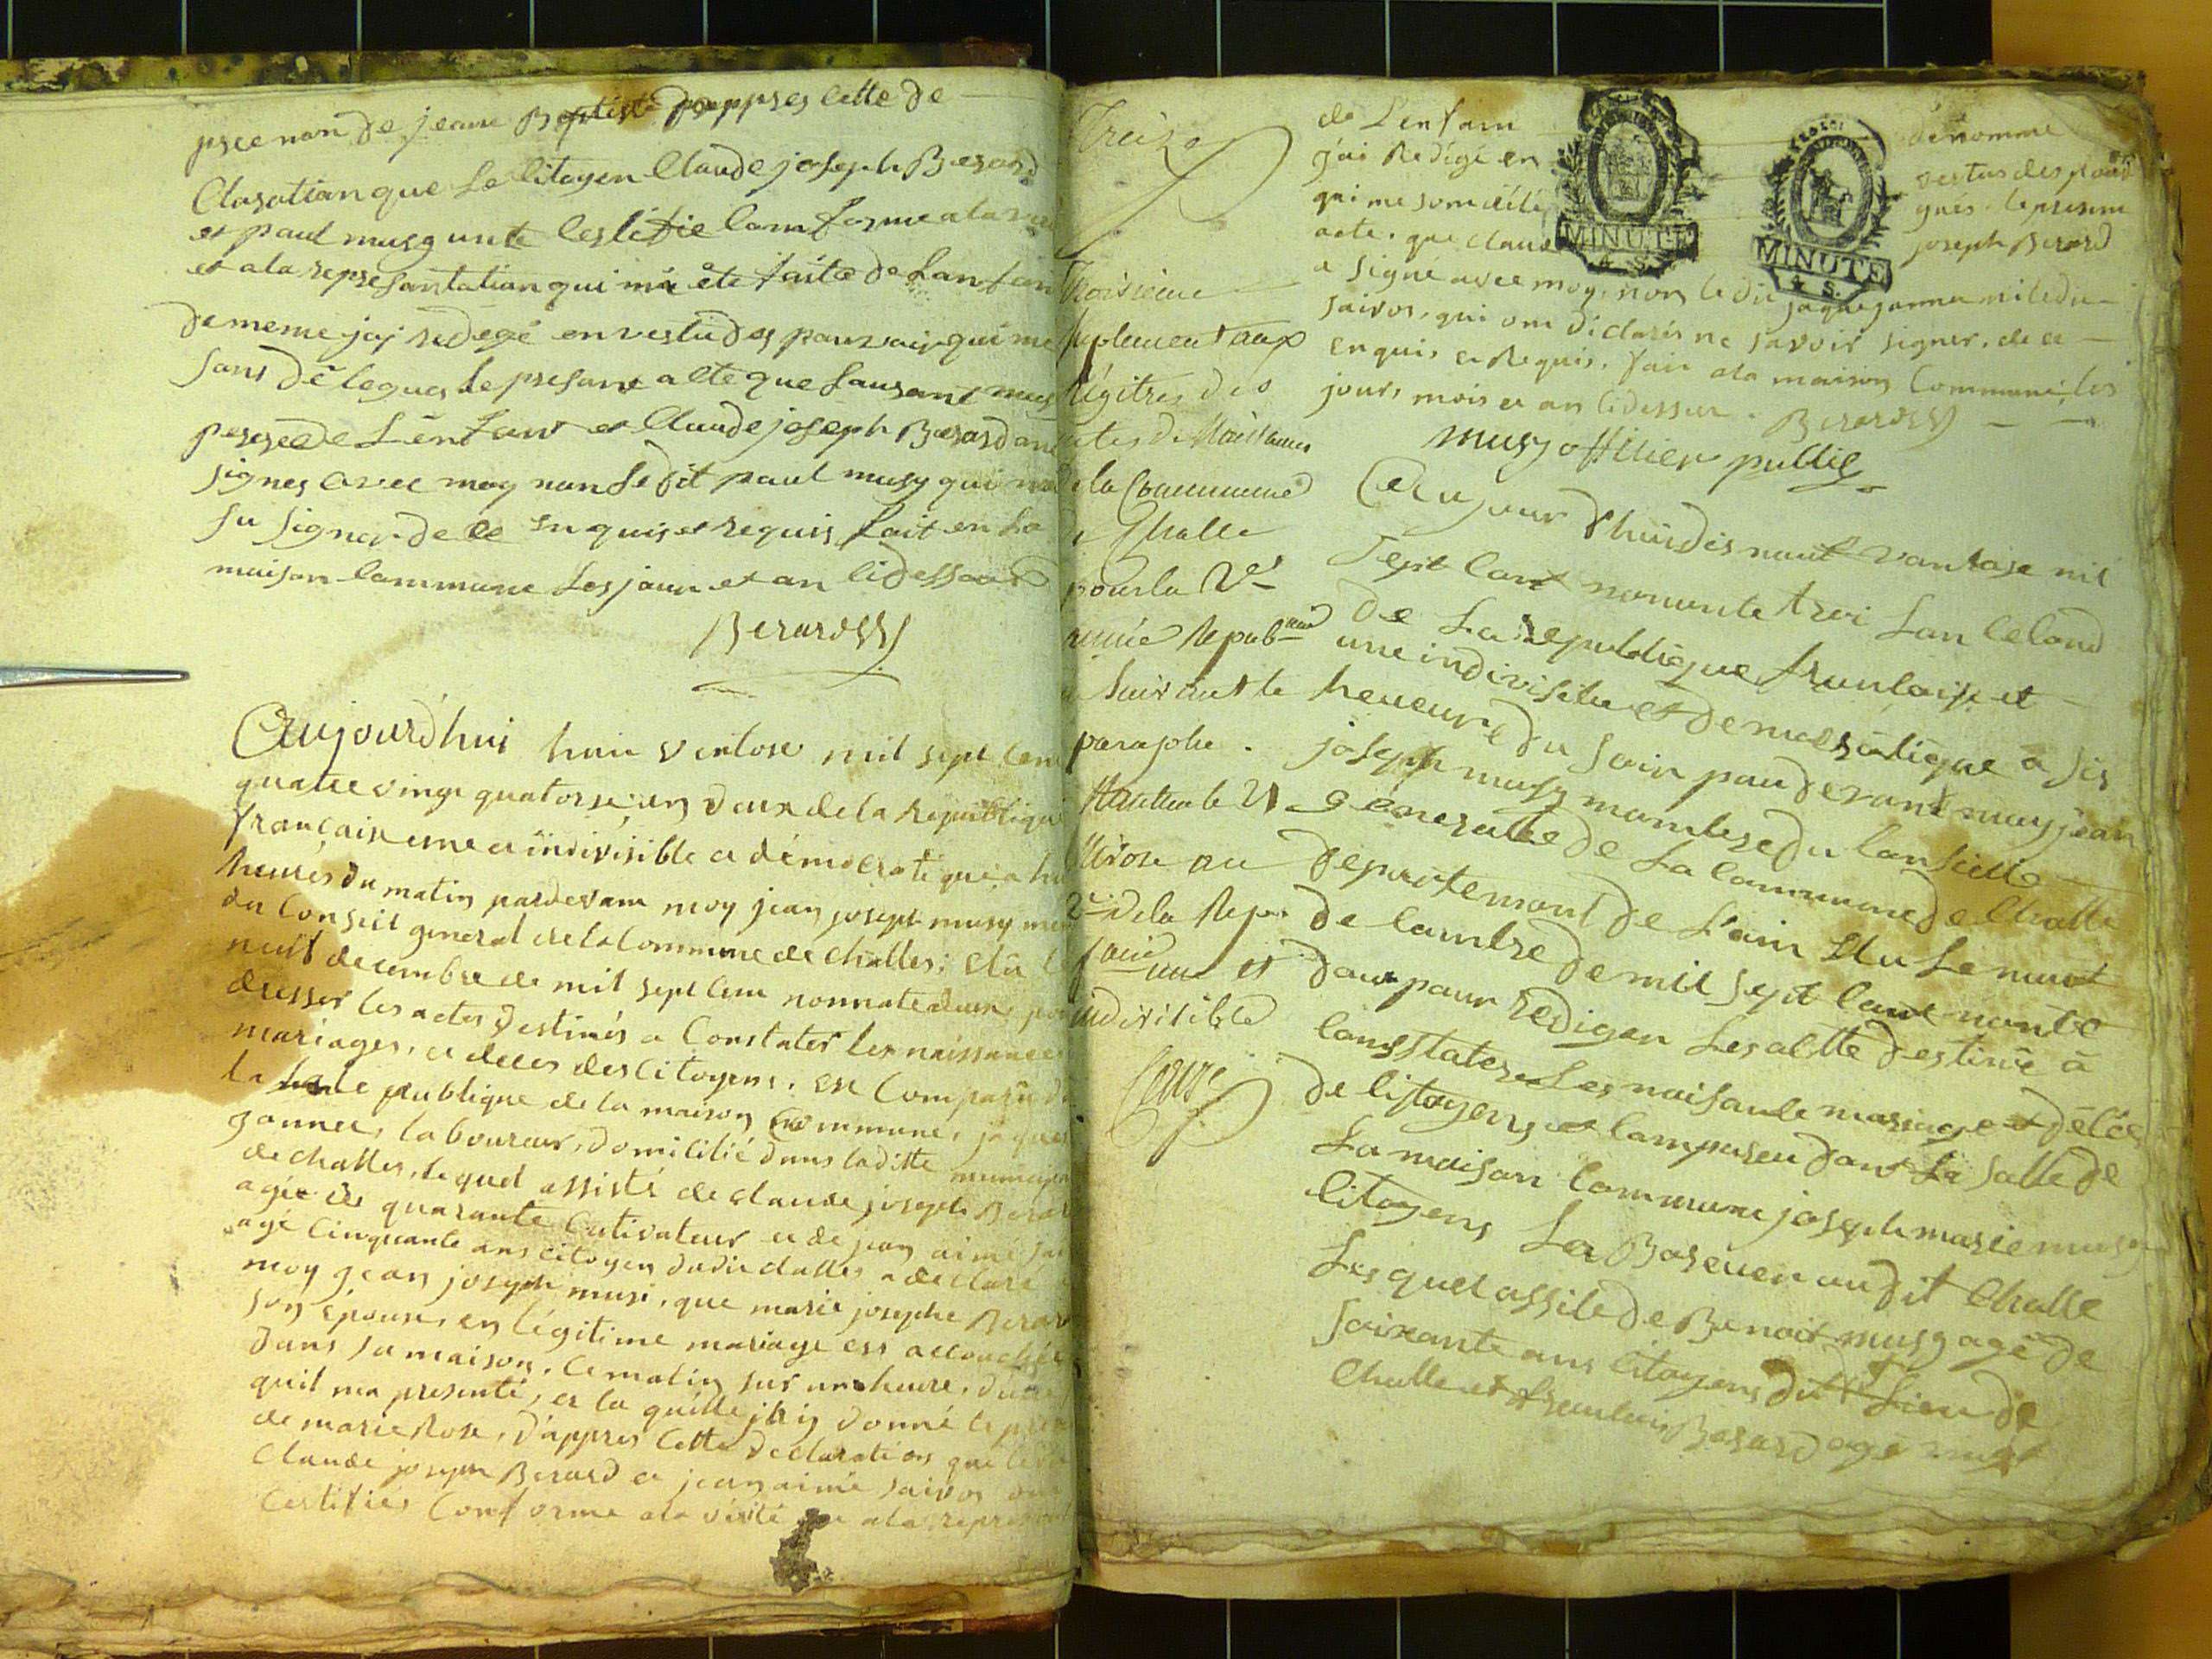 prenon de jean Baptiste dappres cette de
clasation que le citogen Claude joseph Berard
et paul musy unte certifie comforme a la
et a la represantation qui ma ete faite de lanfan
de meme jaj redege en vestu des pouvoir qui me
sont délegues le presant acte que Lausant musy
persse de L'enfant et Claude joseph Berard ont
signes avec moy non le dit paul musy qui na
su signer de ce enquis et requis fait en la
maison commune les jour et an cidessus
Berard
Aujourd'hui huit ventose mil sept cent
quatre vingt quatorse, an deux de la république
française une et indivisible et démocratique, a hui
heures du matin pardevant moy jean joseph musy
du Conseil general de la Commune de challes; elû le
neuf decembre de mil sept cent nonnate deux, pour
dresser les actes destinés a Constater les naissances
mariages, et deces des citoyens. est Comparu
la salle publique de la maison Commune, jaques
gonner, laboureur, domicilié dans la ditte
de challes, lequel assisté de claude joseph Berard
agé de quarante Cultivateur et de jean aimé
agé Cinquante ans citoyen du dit challes a déclaré
moy jean joseph musi, que marie josephe Berard
son épouse, en légitime mariage est accouchée
dans sa maison. Ce matin sur une heure, d'une
quil ma presenté, et la quelle jaij donné le
de marie Rose, d'appres Cette déclaration que
Claude joseph Berard et jean aimé saivos ont
Certifiés Conforme a la vérité et a la
Treize
Troisieme
suplement aux
régitres des
actes de Naissances
de la Commune
de Challe
pour la 2e
année Repub
Suivant le
paraphe.
Nantua le 21
Nivose an
2e de la Rep.
une et
indivisible
de L'enfant dénommé
j'ai Redigé en vertus des pouv
qui me sont délé gués. le présent
acte. que claude joseph Berard
a signé avec moy, non le dit jaque gonner ni le dit
saivos, qui ont déclarés ne savoir signer, de ce
enquis et Requis. fait a la maison Commune, les
jours, mois et an cidessus. Berard
musy officier public
Aujourdhui dis neuf vantose mil
sept cant nonante troi lan cecond
de La republique francaise et
une indivisible et demacratique a sis
heueure du soir pardevant moy jean
joseph musy mambre du conseille
géneralle de La commune de Challe
departemant de L'ain Elu le neuf
de cambre de mil sept cant nonte
deux pour redigen Les actte destinée à
consstater Les naisance mariage et décée
de citogens et comparu dans La salle de
La maison Commune joseph marie musy
citogens La Boreuer audit Challe
Les quel assite de Benoit musy agé de
Soixante ans citogens dit Lieu de
Challe et francois Berard agé